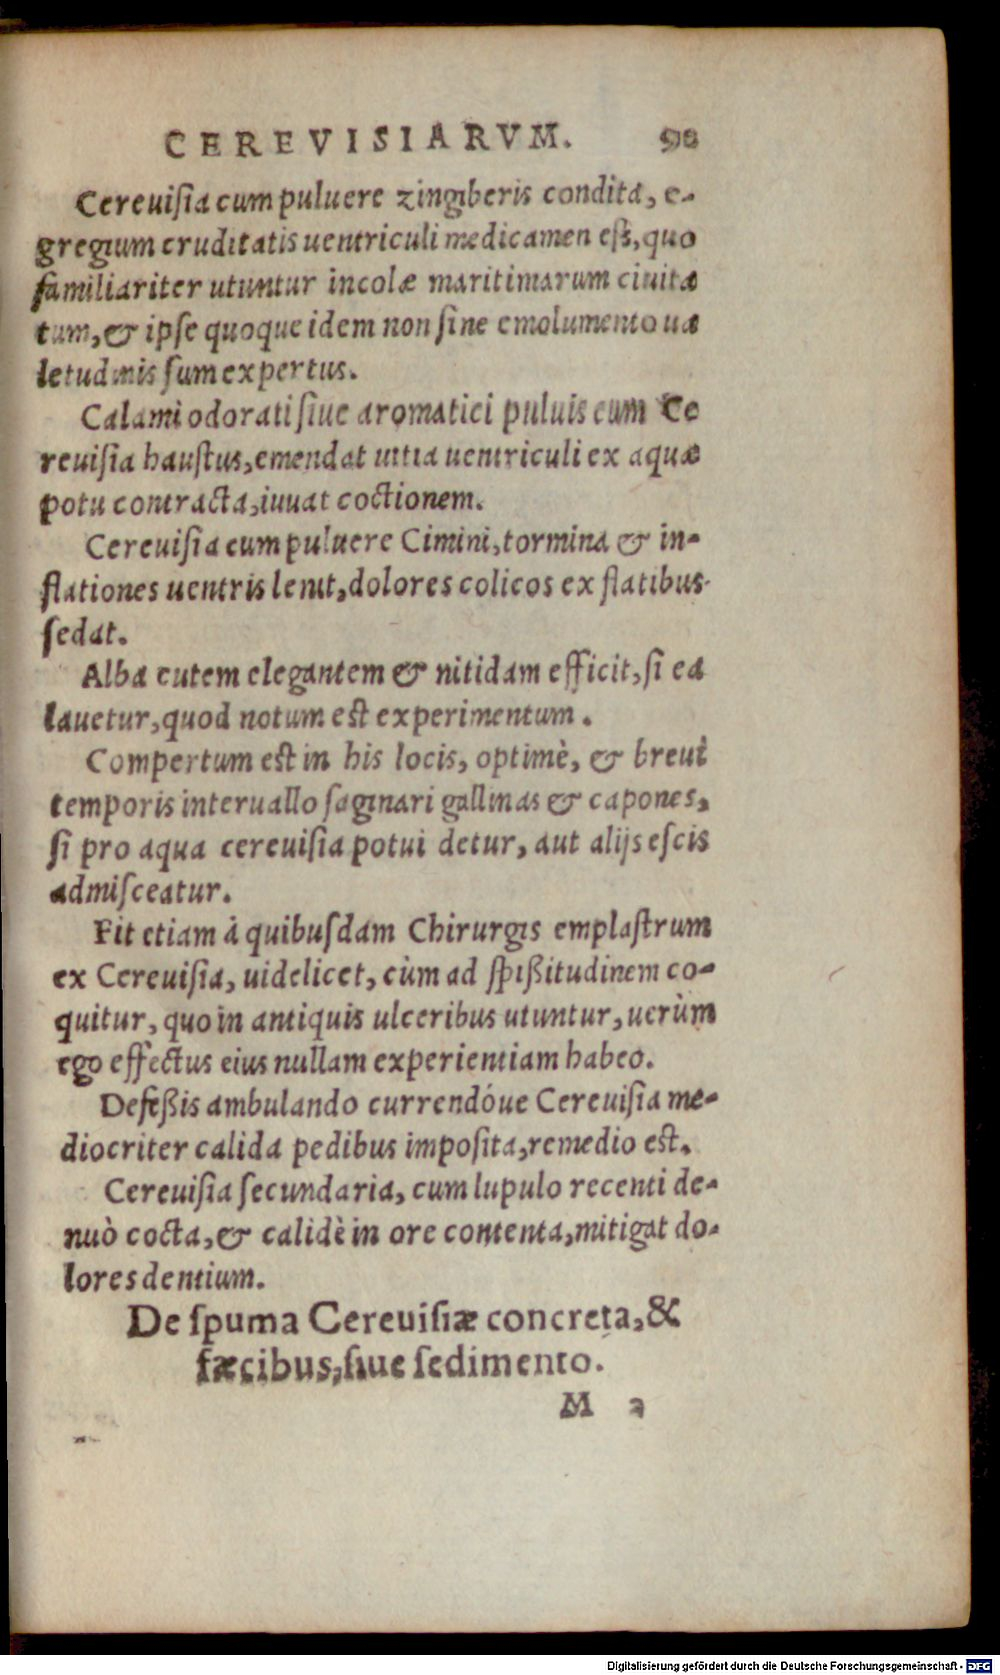 CEREVISIARVM. 90
Cereuiſia cum puluere zingiberis condita, e-
gregium cruditatis uentriculi medicamen eſt, quo
familiariter utuntur incolæ maritimarum ciuita
tum, & ipſe quoque idem non ſine emolumento ua
letudinis ſum expertus.
Calami odorati ſiue aromatici puluis cum Ce
reuiſia hauſtus, emendat uitia uentriculi ex aquæ
potu contracta, iuuat coctionem.
Cereuiſia cum puluere Cimini, tormina & in-
flationes uentris lenit, dolores colicos ex flatibus
ſedat.
Alba cutem elegantem & nitidam efficit, ſi ea
lauetur, quod notum est experimentum.
Compertum est in his locis, optimè, & breui
temporis interuallo ſaginari gallinas & capones,
ſi pro aqua cereuiſia potui detur, aut alijs eſcis
admiſceatur.
Fit etiam à quibuſdam Chirurgis emplaſtrum
ex Cereuiſia, uidelicet, cùm ad ſpißitudinem co-
quitur, quo in antiquis ulceribus utuntur, uerùm
ego effectus eius nullam experientiam habeo.
Defeßis ambulando currendóue Cereuiſia me-
diocriter calida pedibus impoſita, remedio est.
Cereuiſia ſecundaria, cum lupulo recenti de-
nuò cocta, & calidè in ore contenta, mitigat do-
lores dentium.
De ſpuma Cereuiſiæ concreta, &
fæcibus, ſiue ſedimento.
M 2
Digitalisierung gefördert durch die Deutsche Forschungsgemeinschaft - DFG